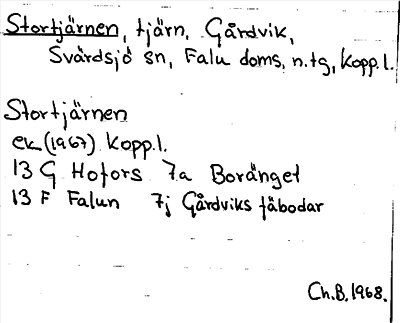 Stortjärnen, tjärn, Gårdvik,
Svärdsjö sn, Falu doms. n. tg, Kopp. l.
Stortjärnen
ek (1967) Kopp. l.
13 G Hofors 7a Boränget
13 F Falun 7j Gårdviks fäbodar
Ch.B. 1968.